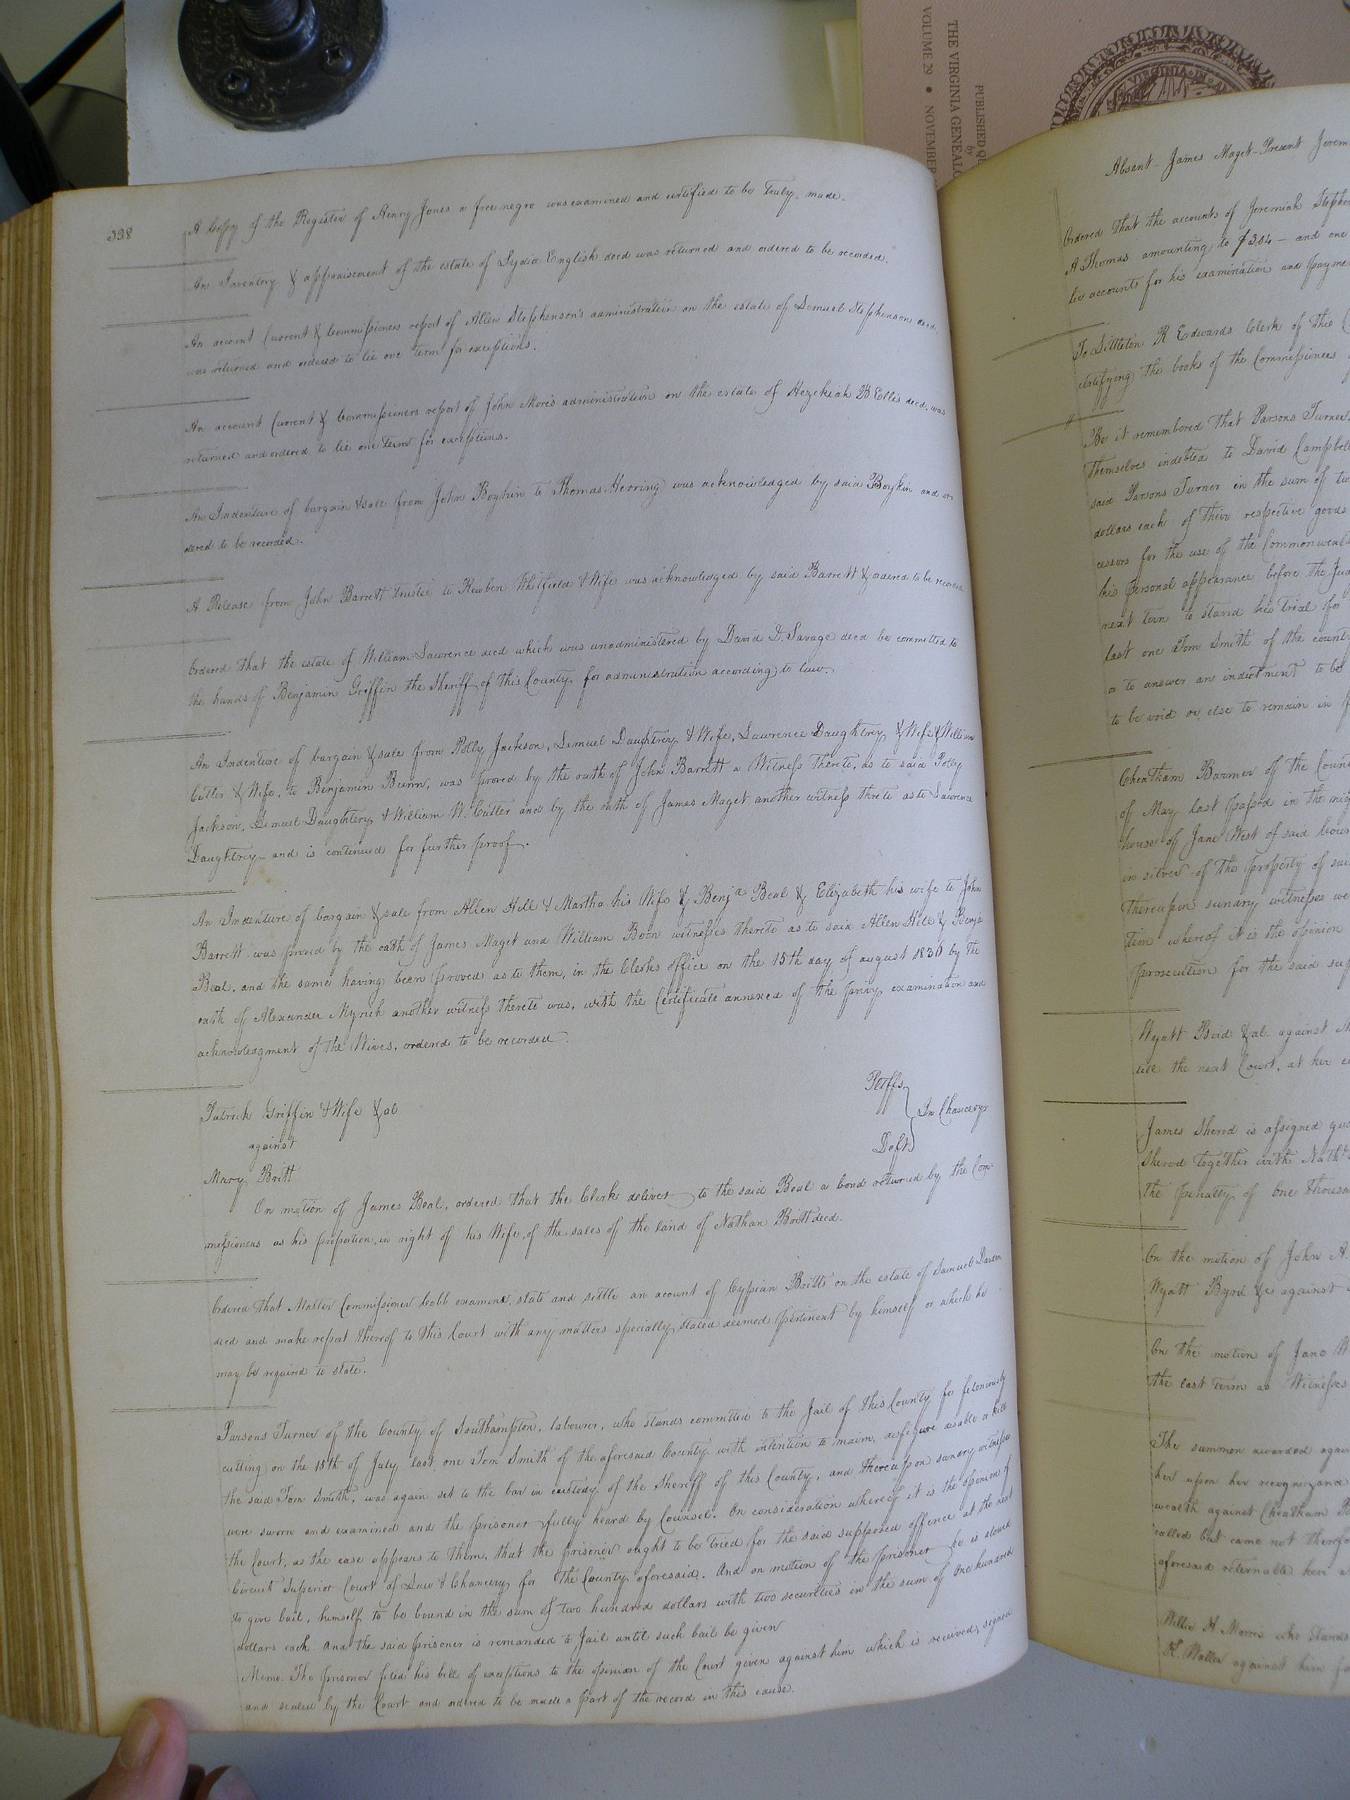 338
A Copy of the Register of Henry Jones a free negro was examined and certified to be truly made.
An Inventory & appraisement of the estate of Lydia English decd was returned and ordered to be recorded.
An account Current & Commissioners report of Allen Stephenson's administration on the estate of Lemuel Stephenson decd.
was returned and ordered to lie one term for exceptions.
An account Current & Commissioners report of John administration on the estate of Hezekiah B. Ellis decd, was
returned and ordered to lie one term for exceptions.
An Indenture of bargain & sale from John Boykin to Thomas Herring was acknowledged by said Boykin and or
dered to be recorded.
A Release from John Barrett trustee to Reuben Whitfield & Wife was acknowledged by said Barrett & ordered to be recorded
Ordered that the estate of William Lawrence decd which was unadministered by David Savage decd be committed to
the hands of Benjamin Griffin the Sheriff of this County for administration according to law.
An Indenture of bargain & sale from Polly Jackson, Lemuel Daughtrey & Wife, Lawrence Daughtrey & Wife & William
Cutler & Wife, to Benjamin was proved by the oath of John Barrett a Witness thereto, as to said Polly
Jackson, Lemuel Daughtery & William W. Cutler and by the oath of James Maget another witness threto as to Lawrence
Daughtrey and is continued for further proof.
An Indenture of bargain & sale from Allen Hill & Martha his Wife & Benja Beal & Elizabeth his wife to John
Barrett was proved by the oath of James Maget and William Boon witnesses thereto as to said Allen Hill & Benja
Beal, and the same having been proved as to them, in the Clerks office on the 15th day of august 1836 by the
oath of Alexander Myrick another witness thereto was, with the Certificate annexed of the privy examination and
acknowledgment of the Wives, ordered to be recorded.
Patrick Griffin & Wife & al Pltffs
against In Chancery
Mary Britt Defts
On motion of James Beal, ordered that the Clerk deliver to the said Beal a bond returned by the Com-
missioners as his proportion, in right of his Wife, of the sales of the land of Nathan Britt decd.
Ordered that Master Commissioner Cobb examine, state and settle an account of Cyprian Britts on the estate of Samuel Darden
decd and make report thereof to this Court with any matters specially stated deemed pertinent by himself or which he
may be required to state.
Parsons Turner of the County of Southampton, labourer, who stands committed to the Jail of this County for feloniously
cutting on the 15th of July last one Tom Smith of the aforesaid County with intention to maim, disfigure disable & kill
the said Tom Smith, was again set to the bar in custody of the Sheriff of this County, and thereupon sundry witnesses
were sworn and examined and the prisoner fully heard by Counsel. On consideration whereof it is the opinion of
the Court, as the case appears to them, that the prisoner ought to be tried for the said supposed offence at the next
Circuit Superior Court of Law & Chancery for the County aforesaid. And on motion of the prisoner he is alowed
to give bail, himself to be bound in the sum of two hundred dollars with two securities in the sum of one hundred
dollars each. And the said prisoner is remanded to Jail until such bail be given
Memo. The prisoner filed his bill of exceptions to the opinion of the Court given against him which is received, signed
and sealed by the Court and ordered to be made a part of the record in this cause.
PUBLISHED
by
THE VIRGINIA GENEAL
VOLUME 29 ● NOVEMBER
VIRGINIA
Absent - James Maget - Present Jerem
Ordered that the accounts of Jeremiah Stephe
A Thomas amounting to $304 - and one
lie accounts for his examination and payme
To Littleton R Edwards Clerk of this
certifying the books of the Commissioners
Be it remembered that Parsons Turner,
themselves indebted to David Campbell
said Parsons Turner in the sum of tw
dollars each of their respective goods
cessors for the use of the Commonweal
his personal appearance before the Jud
next term to stand his trial for
last one Tom Smith of the count
or to answer an indictment to be
to be void or else to remain in f
Cheatham Barmer of the Coun
of May last passed in the nig
house of Jane West of said Coun
in silver of the property of sai
thereupon sundry witnesses we
tion whereof it is the opinion
prosecution for the said sup
Wyatt Bird & al against
use the next Court, at her c
James Sherod is assigned gua
Sherod together with Nathl
the penalty of One thousa
On the motion of John A.
Wyatt Byrd &c against
On the motion of Jane W
the last term as Witnesses
The summon awarded again
her upon her recognizance
wealth against Cheatham B
called but came not therefo
aforesaid returnable here
Willie H. Morris who stands
H. Waller against him fo